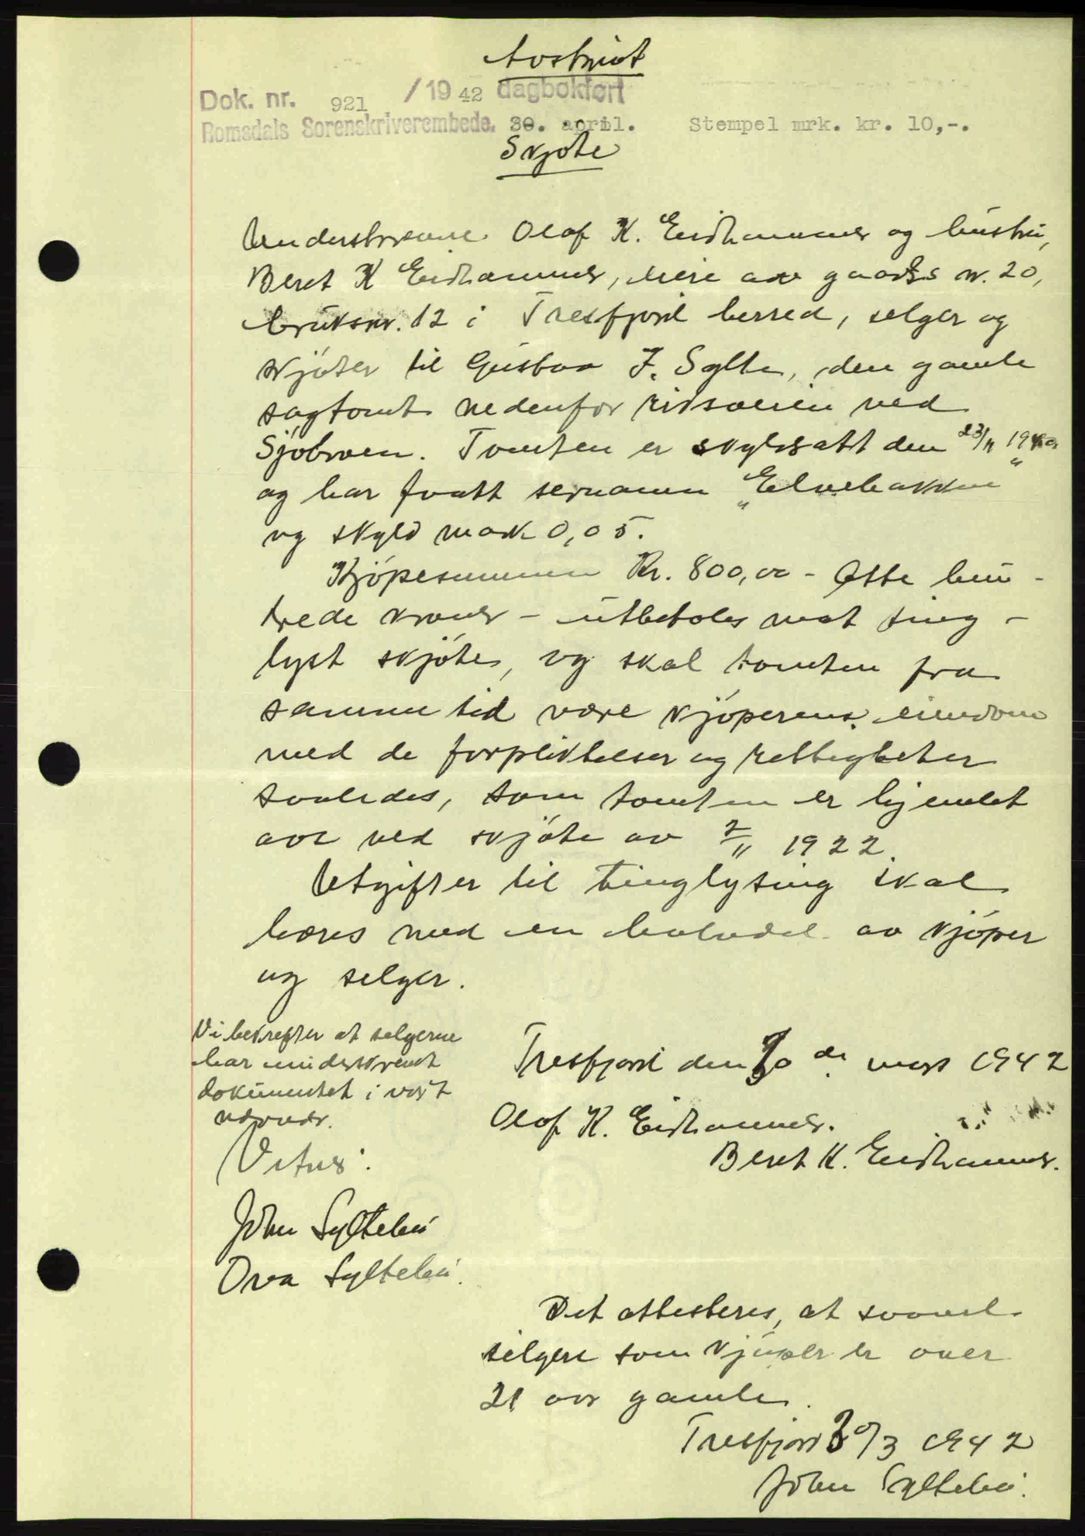 Avskrift
Dok. nr. 921 / 19 42 dagbokført
Romsdals Sorenskriverembede. 30. april. Stempel mrk. kr. 10,-.
Skjøte
Underskrevne Olaf K. Eidhammer og hustru,
Beret K Eidhammer, eiere av gaards nr. 20,
bruksnr. 12 i Tresfjord herred, selger og
skjøter til Gustav J. Sylte, den gamle
sagtomt nedenfor riksveien ved
Sjøbroen. Tomten er skyldsatt den 23/11
og har faatt sernamn "Elvebakken"
og skyld mark 0,05.
Kjøpesummen Kr. 800,00 - Otte hun-
drede kroner - utbetales mot ting-
lyst skjøte, og skal tomten fra
samme tid være kjøperens eiendom
med de forpliktelser og rettigheter
saaledes, som tomten er hjemlet
oss ved skjøte av 2/11 1922.
Utgifter til tinglysing skal
bæres med en halvdel av kjøper
og selger.
Tresfjord den 30 de mars 1942
Olaf K. Eidhammer.
Beret K. Eidhammer.
Vi bekrefter at selgerne
har underskrevet
dokumentet i vort
nærvær.
Vitner:
John Syltebø
Ova Syltebø.
Det attesteres, at saavel
selgere som kjøper er over
21 aar gamle.
Tresfjord 30/3 1942
John Syltebø.